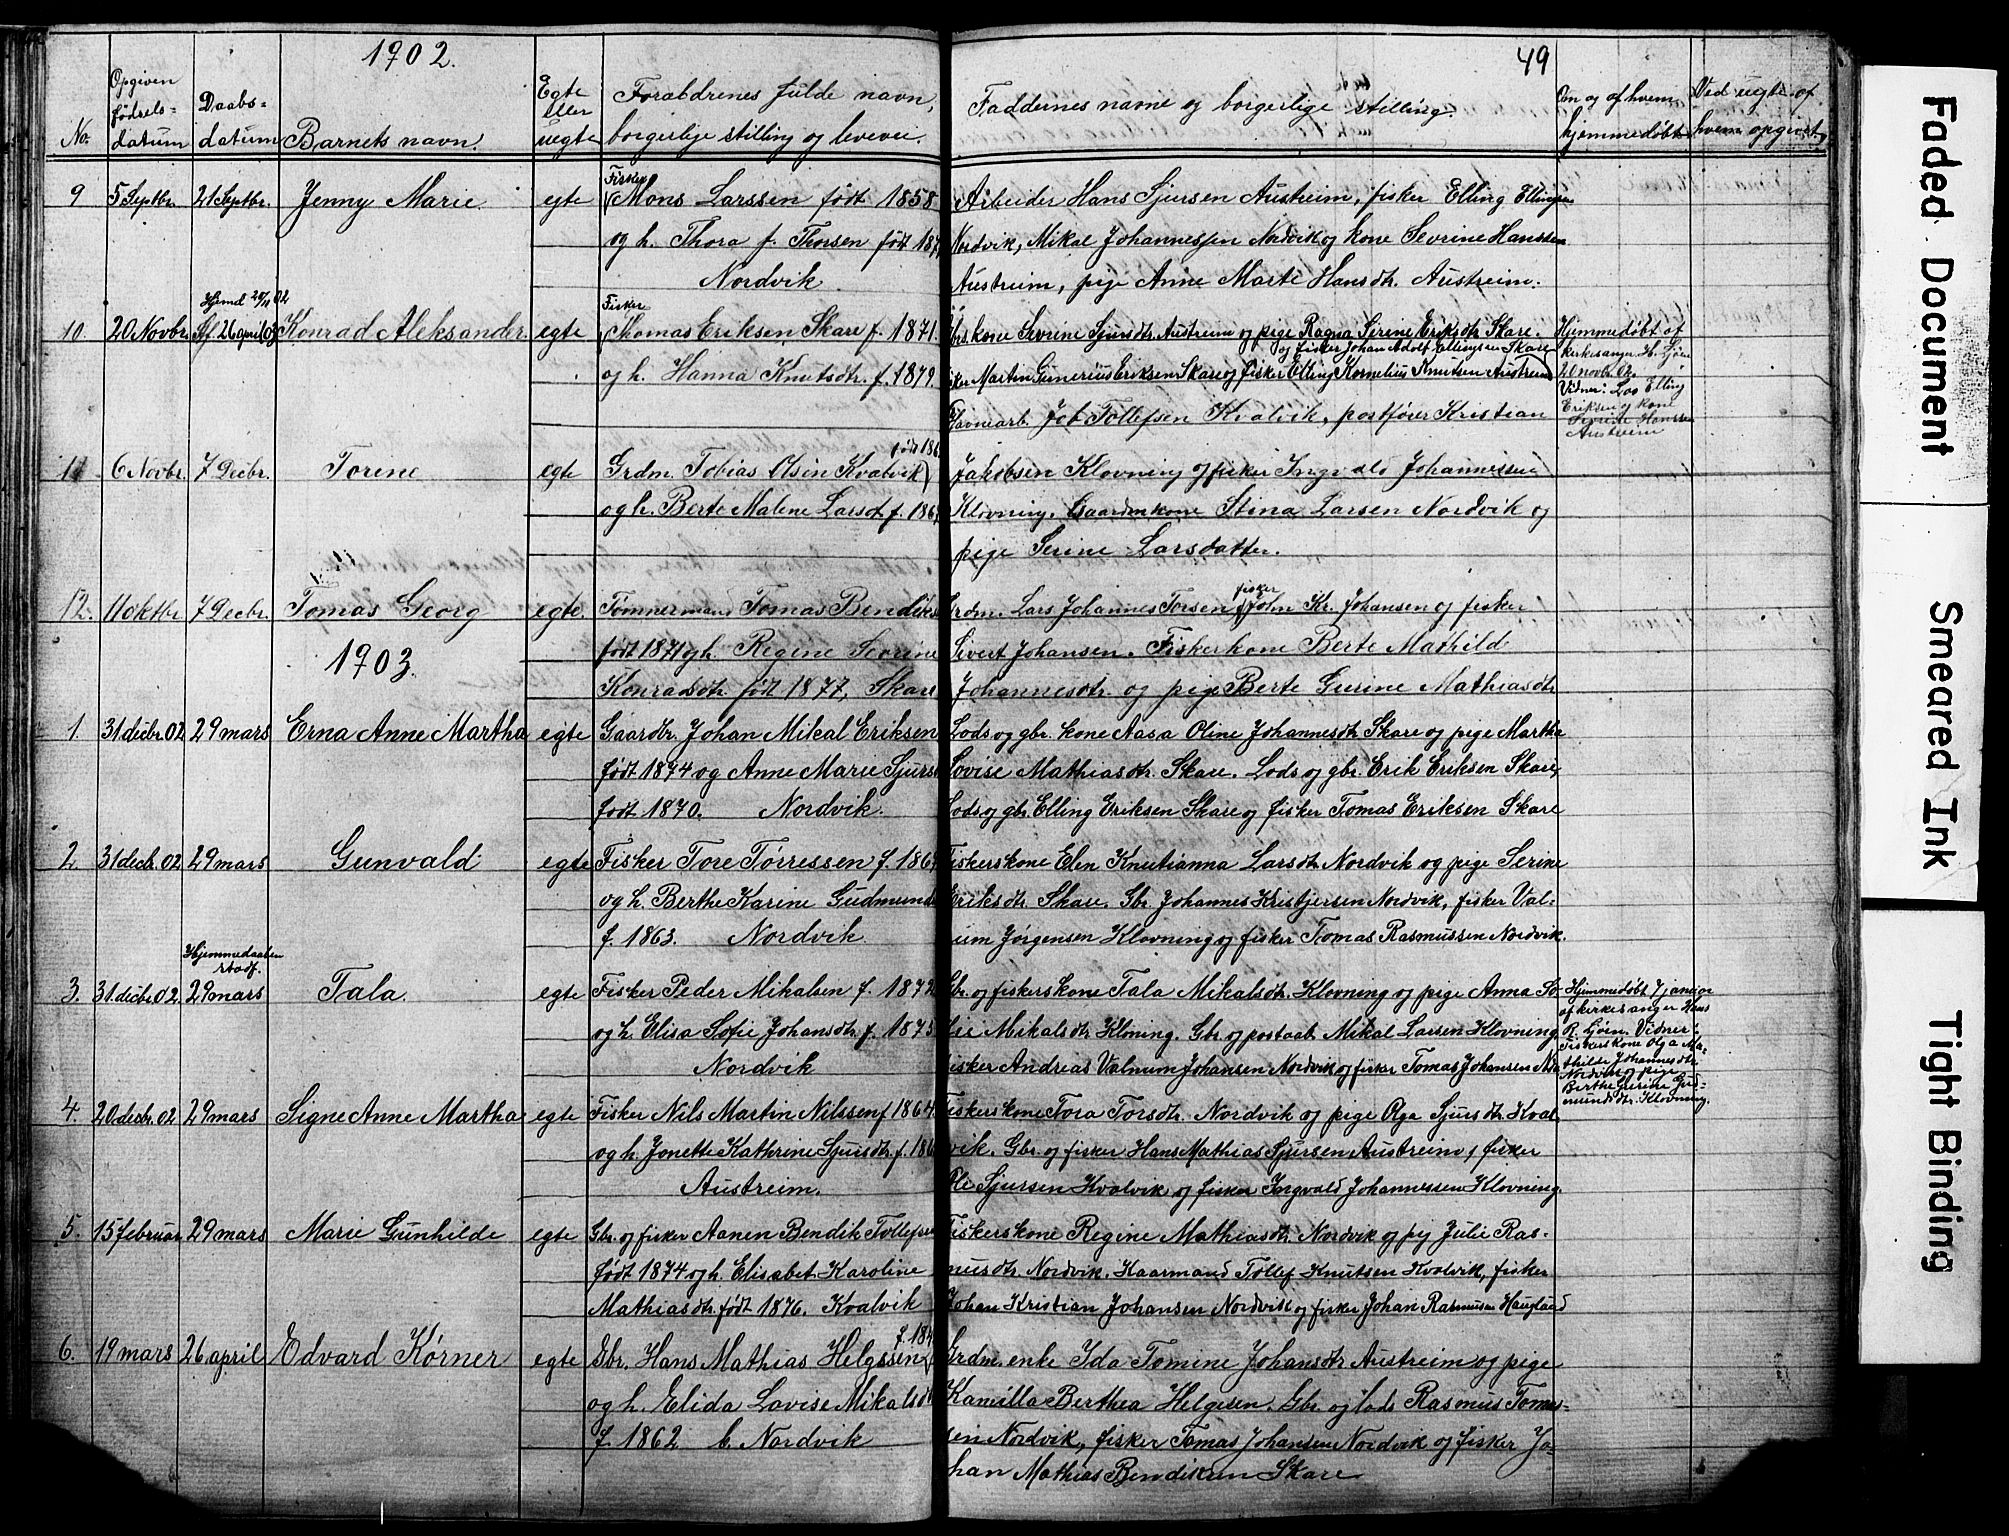 1902.
49
No.
Opgiven
fødsels-
datum
Daabs-
datum
Barnets navn.
Egte
eller
uegte
Forældrenes fulde navn,
borgerlige stilling og levevei.
Faddernes navne og borgerlige stilling.
Om og af hvem
hjemmedøbt
Ved uegte af
hvem opgivet
9 5 Septbr. 21 Septbr. Jenny Marie egte
Fisker
Mons Larssen født 1858
og h. Thora f. Thorsen født
Nordvik
Arbeider Hans Sjursen Austreim, fisker Elling Ellingsen
Nordvik, Mikal Johannessen Nordvik og kone Sevrine Hanssen
Austreim, pige Anne Marte Hansdtr. Austreim.
Hjemd 20/11 02
10. 20 Novbr. 26 april 03 Konrad Aleksander. egte
Fisker
Thomas Eriksen Skare f. 1871.
og h. Hanna Knutsdtr. f. 1879.
kone Sevrine Sjursdtr. Austreim og pige Ragna Serine Eriksdtr. Skare.
og fisker Johan Adolf Ellingsen Skare
Martin Gunerius Eriksen Skare og fisker Elling Kornelius Knutsen Austreim
Hjemmedøbt af
kirkesanger H. Ljøen
20 novbr. 02.
Vidner: Los Elling
Eriksen og kone
Sevrine Hanssen
Austreim
11 6 Novbr. 7 Decbr. Torene egte
født
Grdm. Tobias Olsen Kvalvik
og h. Berte Malene Larsdtr. f.
Havnearb. Job Tollefsen Kvalvik, postfører Kristian
Jakobsen Klovning og fisker Ingvald Johannessen
Klovning. Gaardmkone Stina Larsen Nordvik og
pige Serine Larsdatter.
12. 11 oktbr. 7 Decbr. Tomas Georg egte.
Tømmermand Tomas Bendiks
født 1871 og h. Regine Sevrine
Konradsdtr. født 1877, Skare
Grdm. Lars Johannes Torsen, fisker John Kr. Johansen og fisker
Sivert Johansen. Fiskerkone Berte Mathild
Johannesdtr. og pige Berte Gurine Mathiasdtr.
1903.
1. 31 decbr. 02 29 mars Erna Anne Martha egte
Gaardbr. Johan Mikal Eriksen
født 1874 og Anne Marie Sjurs
født 1870. Nordvik.
Lods og gbr. kone Aasa Oline Johannesdtr. Skare og pige Martha
Lovise Mathiasdtr. Skare. Lods og gbr. Erik Eriksen Skare,
Lods og gbr. Elling Eriksen Skare og fisker Tomas Eriksen Skare
2. 31 decb. 02 29 mars Gunvald egte
Fisker Tore Tørressen f.
og h. Berthe Karine Gudmunds
f. 1863. Nordvik
Fiskerskone Elen Knutianna Larsdtr. Nordvik og pige Serine
Eriksdtr. Skare. Gbr. Johannes Kristjersen Nordvik, fisker Val-
Jørgensen Klovning og fisker Tomas Rasmussen Nordvik.
Hjemmedaaben
stadf.
3. 31 decbr. 02 29 mars Tala. egte
Fisker Peder Mikalsen f. 1872
og h. Elisa Sofie Johansdtr. f. 1875
Nordvik
Gbr. og fiskerskone Tala Mikalsdtr. Klovning og pige Anna So-
fie Mikalsdtr. Kloning. Gbr. og postaab. Mikal Larsen Klovning
fisker Andreas Valnum Johansen Nordvik og fisker Tomas Johansen
Hjemmedøbt 7 januar
af kirkesanger Hans
R. Ljøen. Vidner:
Fiskerskone Olga Ma-
thilde Johannesdtr.
Nordvik og pige
Berthe Serine Gud-
mundsdtr. Klovning.
4. 20 decbr. 02 29 mars Signe Anne Martha egte
Fisker Nils Martin Nilssen f 1864.
og h. Jonette Kathrine Sjursdtr. f.
Austreim.
Fiskerskone Tora Torsdtr. Nordvik og pige Olga Sjursdtr. Kval
vik. Gbr. og fisker Hans Mathias Sjursen Austreim, fisker
Ole Sjursen Kvalvik og fisker Ingvald Johannessen Klovning.
5. 15 februar 29 mars Marie Gunhilde egte
Gbr. og fisker Aanen Bendik Tollefsen
født 1874 og h. Elisabet Karoline
Mathiasdtr. født 1876. Kvalvik
Fiskerskone Regine Mathiasdtr. Nordvik og pig Julie Ras-
musdtr. Nordvik. Kaarmand Tollef Knutsen Kvalvik, fisker
Johan Kristian Johansen Nordvik og fisker Johan Rasmusen Haugland
6. 19 mars 26 april Edvard Kørner egte
Gbr. Hans Mathias Helgesen
og h. Elida Lovise Mikalsdtr
f. 1862 b. Nordvik
Grdm. enke Ida Tomine Johansdtr Austreim og pige
Kamilla Berthea Helgesen. Gbr. og lods Rasmus Tomas-
sen Nordvik, fisker Tomas Johansen Nordvik og fisker Jo-
han Mathias Bendiksen Skare
Faded Document
Smeared Ink
Tight Binding